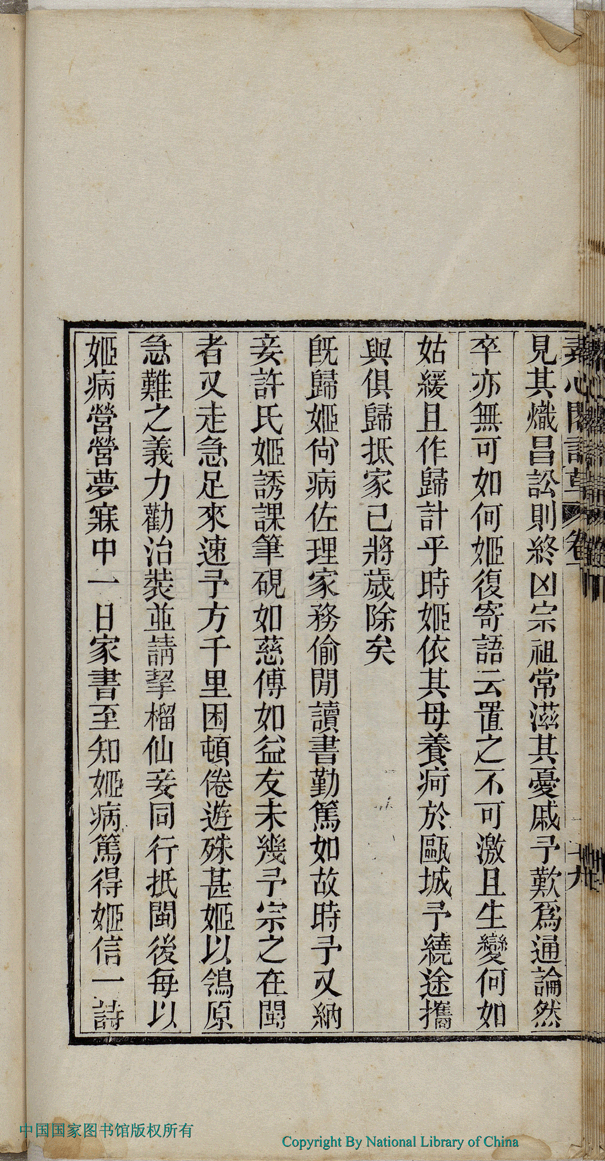 素心閣詩草 卷一
見其熾昌訟則終凶宗祖常滋其憂戚予歎爲通論然
卒亦無可如何姬復寄語云置之不可激且生變何如
姑緩且作歸計乎時姬依其母養疴於甌城予繞途攜
與俱歸抵家已將歲除矣
旣歸姬尙病佐理家務偷閒讀書勤篤如故時予又納
妾許氏姬誘課筆硯如慈傅如益友未幾予宗之在閩
者又走急足來速予方千里困頓倦遊殊甚姬以鴒原
急難之義力勸治裝並請挈榴仙妾同行抵閩後每以
姬病營營夢寐中一日家書至知姬病篤得姬信一詩
中国国家图书馆版权所有
Copyright By National Library of China